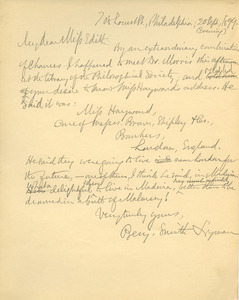 708 Locust St., Philadelphia, 20 Sep., 1899.
(evening)
My dear Miss Edith
By an extraordinary combination
of chances I happened to meet Dr. Morris this afternoon
at the library of the Philosophical Society, and
of your desire to know Miss Haywood's address. He
said it was:
Miss Haywood,
Care of Messrs. Brown, Shipley & Co.,
Bankers,
London, England.
He said they were going to live near London for
the future, — one of them, I think he said, in Madeira
delightful to live in Madeira, better than
drowned in a butt of Malmsey!
Very truly yours,
Benj. Smith Lyman